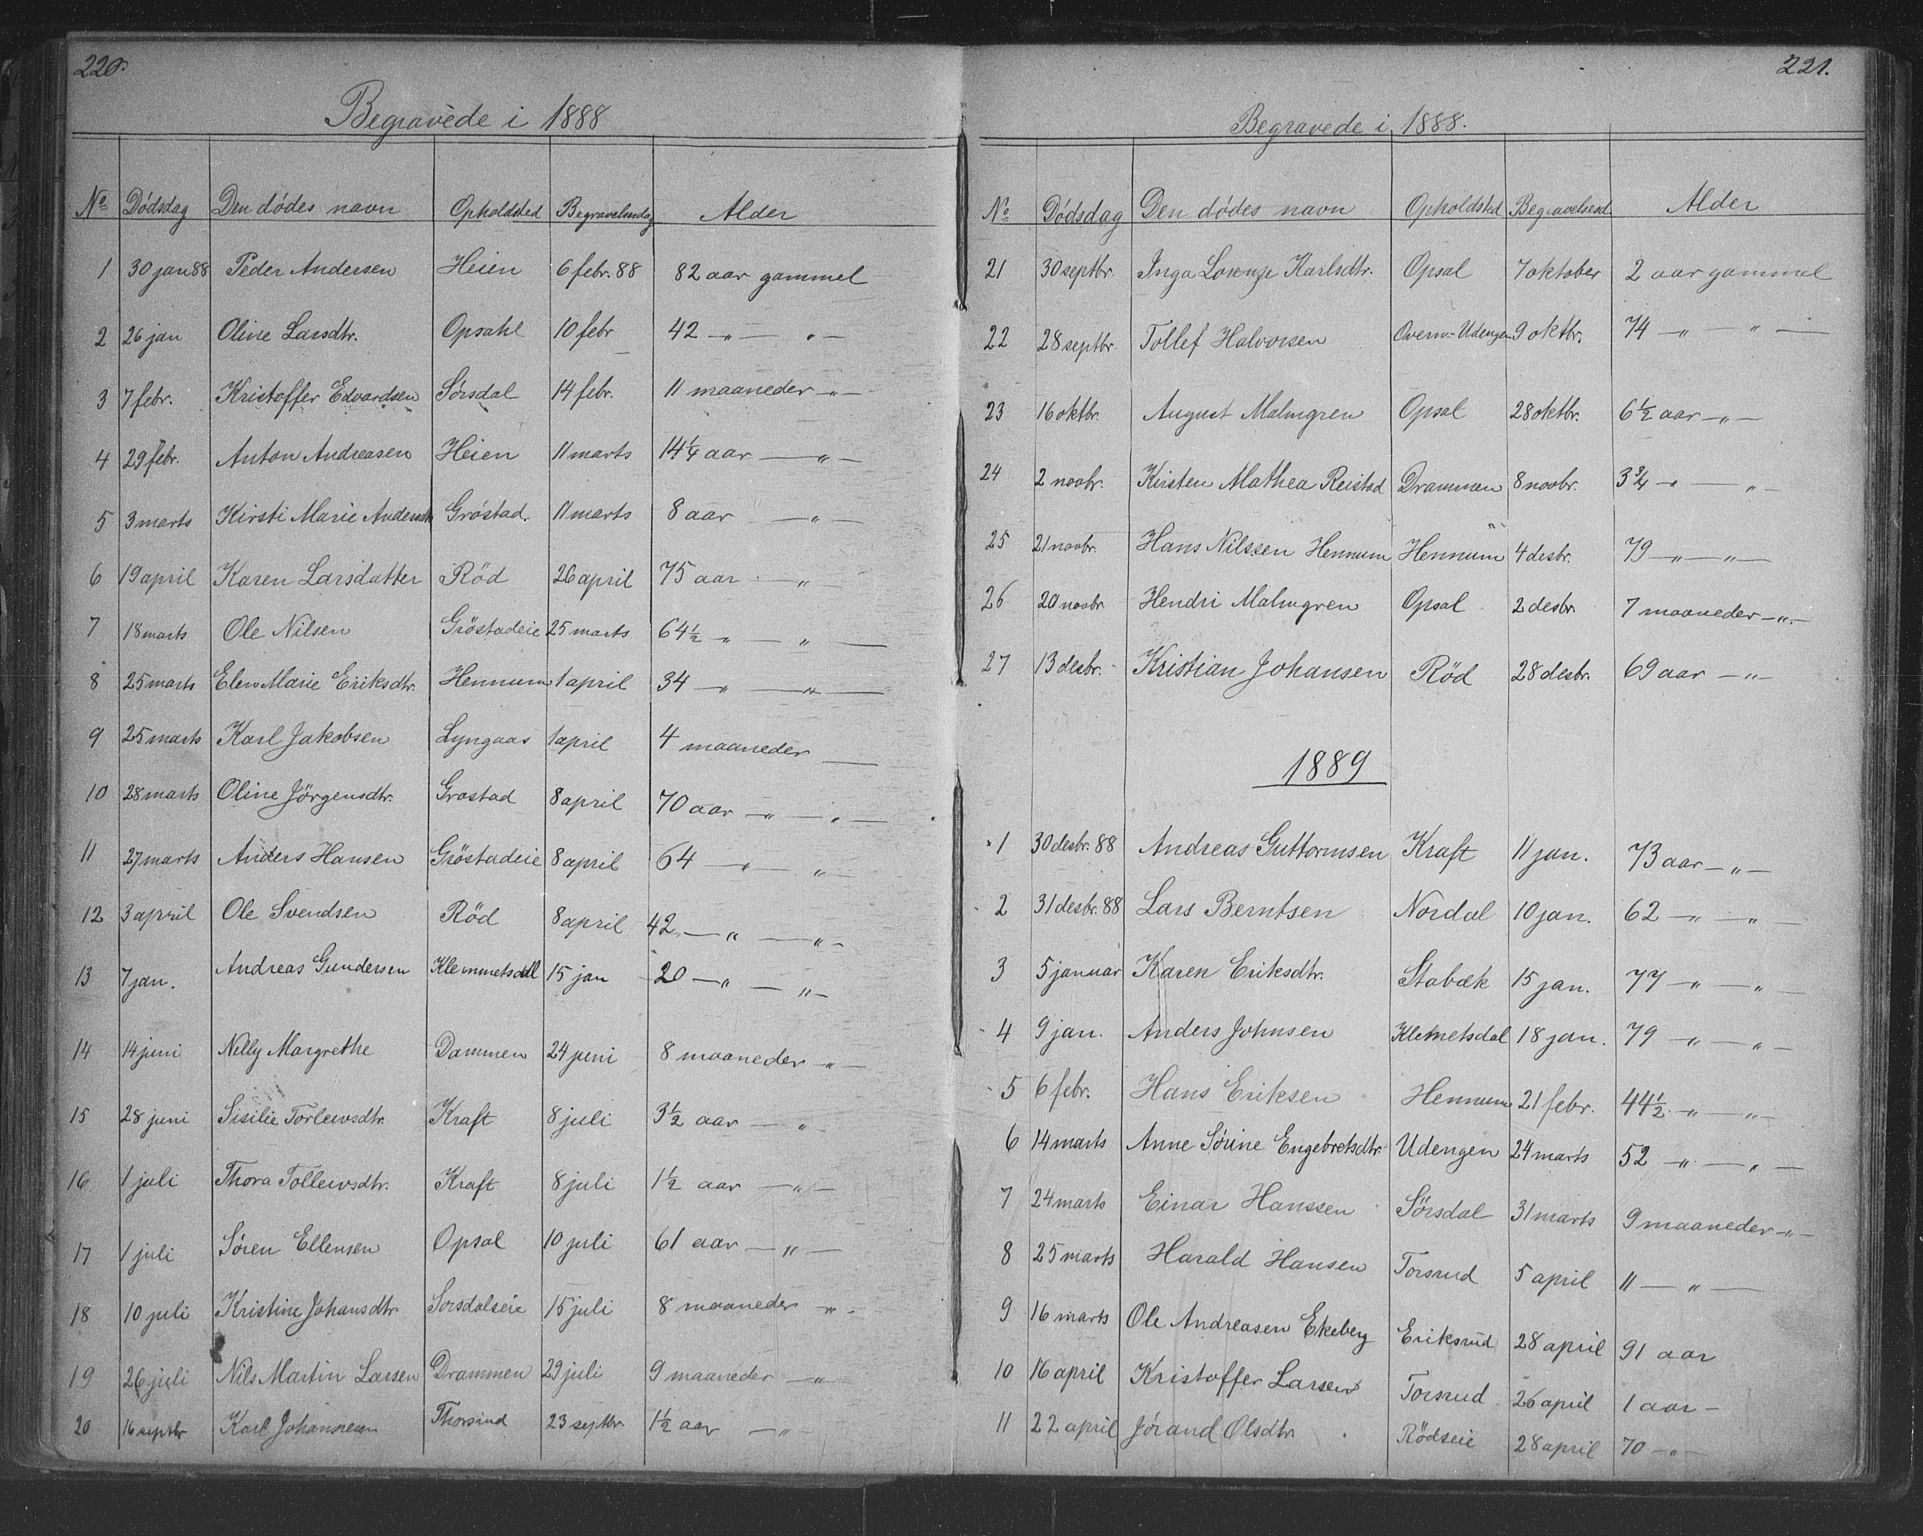 220.
Begravede i 1888
No Dódsdag Den dódes navn Opholdsted Begravelsesdag Alder
1 30 jan 88 Peder Andersen Heien 6 febr. 88 82 aar gammel
2 26 jan Oline Larsdtr. Opsahl 10 febr 42 —„— „—
3 7 febr. Kristoffer Edvardsen Sørsdal 14 febr. 11 maaneder —„—
4 29 febr. Anton Andreasen Heien 11 marts 14 1/4 aar —„—
5 3 marts Kirsti Marie Andersdtr Gróstad. 11 marts 8 aar —„—
6 19 april Karen Larsdatter Rød 26 april 75 aar —„—
7 18 marts Ole Nilsen Gróstadeie 25 marts 64 1/2 „— „—
8 25 marts Elen Marie Eriksdtr. Hennum 1 april 34 —„— —„—
9 25 marts Karl Jakobsen Lyngaas 1 april 4 maaneder —
10 28 marts Oline Jörgensdtr. Grostad 8 april 70 aar —„— „—
11 27 marts Anders Hansen Gróstadeie 8 april 64 —„— „—
12 3 april Ole Svendsen Röd 8 april 42 —„— —„—
13 7 jan. Andreas Gundersen Klemmetsdal 15 jan 20 —„— —„—
14 14 juni Nelly Margrethe Dammen 24 juni 8 maaneder „—
15 28 juni Sisilie Torlewsdtr. Kraft 8 juli 3 1/2 aar —„—
16 1 juli Thora Tollewsdtr. Kraft 8 juli 1 1/2 aar —„—
17 1 juli Søren Ellensen Opsal 10 juli 61 aar —„—
18 10 juli Kristine Johansdtr. Sorsdalseie 15 juli 8 maaneder „—
19 26 juli Nils Martin Larsen Drammen 29 juli 9 maaneder —„—
20 16 septbr Karl Johannesen Thorsrud 23 septbr. 1 1/2 aar —„—
221.
Begravede i 1888.
No Dódsdag Den dódes navn Opholdsted Begravelsesd. Alder
21 30 septbr. Inga Lorenze Karlsdtr. Opsal 7 oktober 2 aar gammel
22 28 septbr. Tollef Halvorsen Overn-Udengen 9 oktbr. 74 —„— „—
23 16 oktbr. August Malmgren Opsal 28 oktbr. 6 1/2 aar —„—
24 2 novbr. Kirsten Mathea Reistad Drammen 8 novbr. 3 3/4 —„— „—
25 21 novbr. Hans Nilssen Hennum Hennum 4 desbr. 79 —„— „—
26 20 novbr. Hendri Malmgren Opsal 2 desbr. 7 maaneder —„—
27 13 desbr. Kristian Johansen Röd 28 desbr. 69 aar —„—
1889
1 30 desbr. 88 Andreas Guttormsen Kraft 11 jan. 73 aar —„—
2 31 desbr. 88 Lars Berntsen Nordal 10 jan. 62 —„— „—
3 5 januar Karen Eriksdtr. Stabæk 15 jan. 77 —„— „—
4 9 jan. Anders Johnsen Klemetsdal 18 jan. 79 —„— „—
5 6 febr. Hans Eriksen Hennum 21 febr. 44 1/2 „— „—
6 14 marts Anne Sørine Engebretsdtr. Udengen 24 marts 52 —„— „—
7 24 marts Einar Hanssen Sørsdal 31 marts 9 maaneder —„—
8 25 marts Harald Hansen Torsrud 5 april 11 — „—
9 16 marts Ole Andreasen Ekeberg Eriksrud 28 april 91 aar
10 16 april Kristoffer Larsen Torsrud 26 april 1 aar —
11 22 april Jórand Olsdtr. Rödseie 28 april 70 —„—